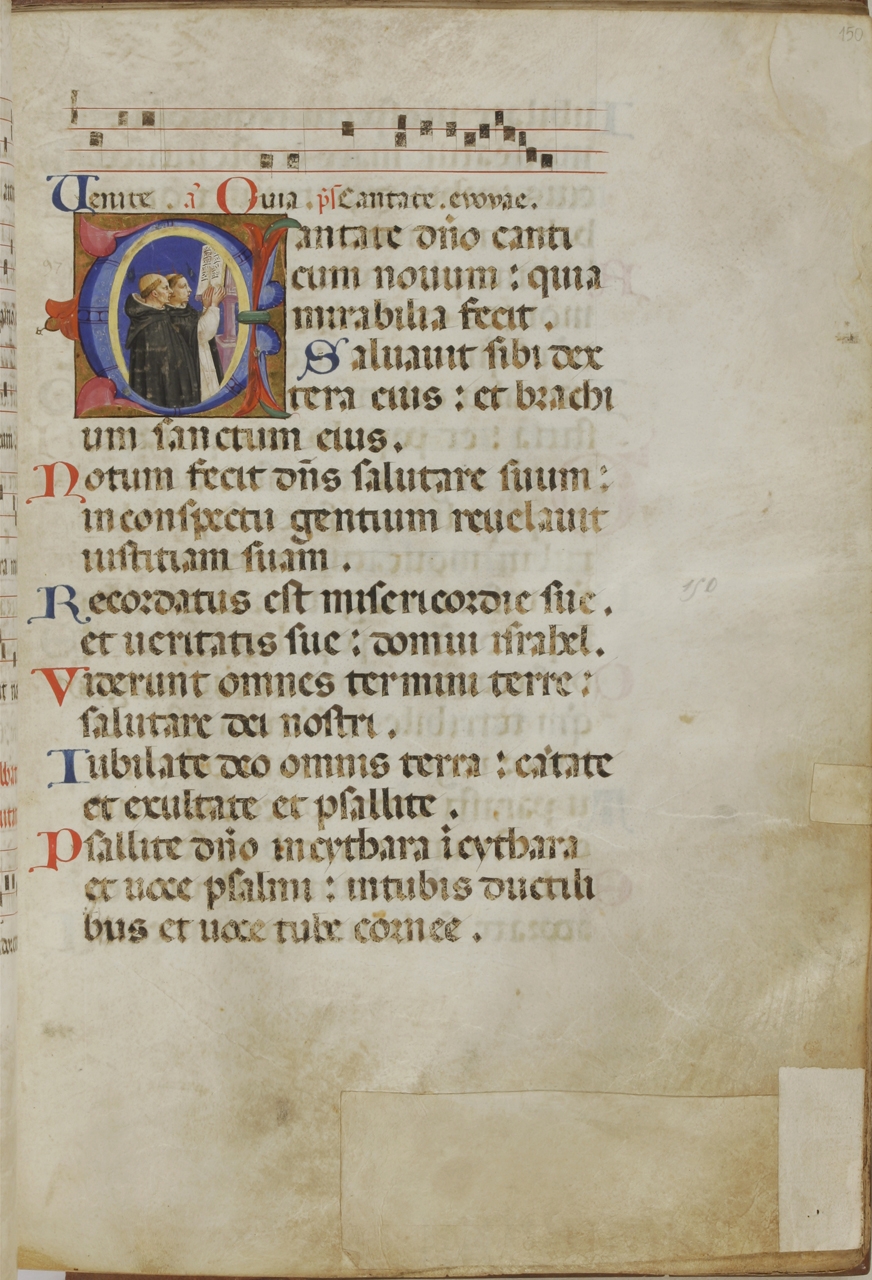 150
Venite . a᷎ Quia . ps̄ Cantate . evovae .
Cantate dn̄o canti
cum nouum : quia
mirabilia fecit .
Saluauit sibi dex
tera eius : et brachi
um sanctum eius .
Notum fecit dn̄s salutare suum :
in conspectu gentium reuelauit
iustitiam suam .
Recordatus est misericordie sue .
et ueritatis sue : domui israhel .
Viderunt omnes termini terre :
salutare dei nostri .
Iubilate deo omnis terra : cātate
et exultate et psallite .
150
Psallite dn̄o in cythara ī cythara
et uoce psalmi : in tubis ductili
bus et uoce tube cornee .